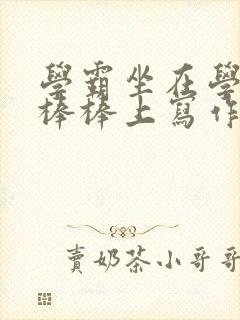 學霸坐在學
棒棒上寫作
賣奶茶小哥哥